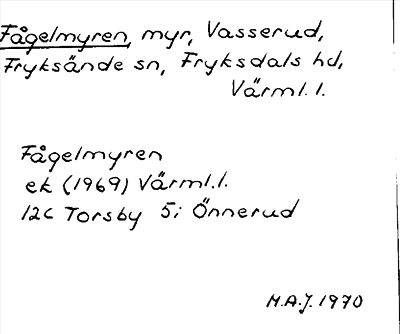 Fågelmyren, myr, Vasserud,
Fryksände sn, Fryksdals hd,
Värml. l.
Fågelmyren
ek (1969) Värml. l.
12C Torsby 5i Önnerud
M.A.J. 1970